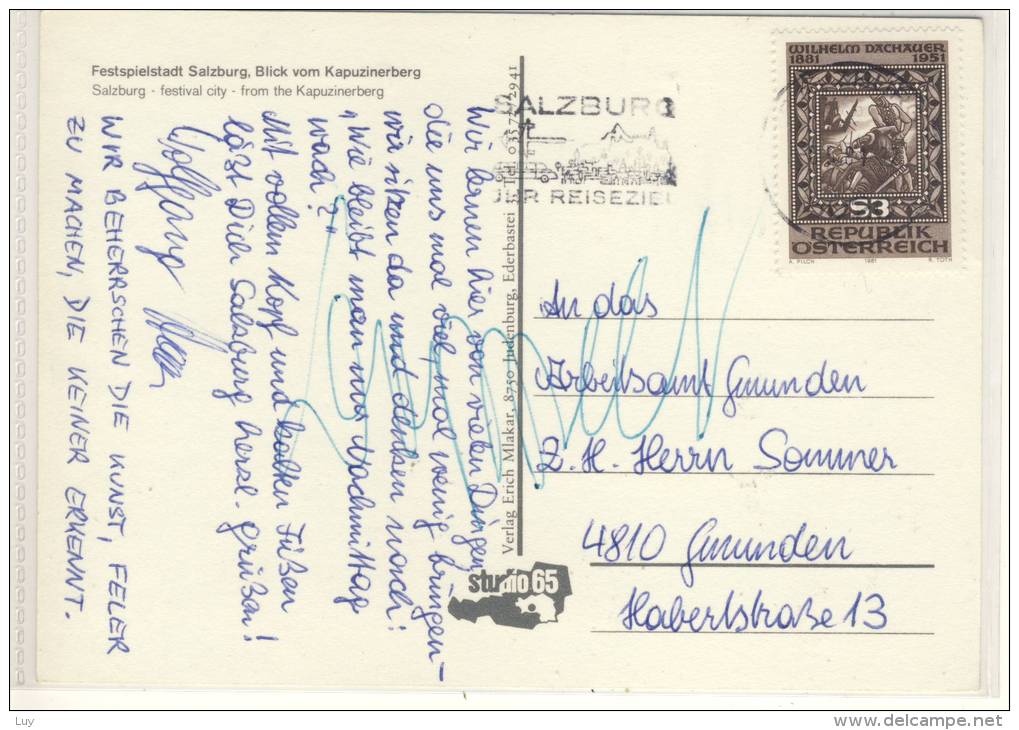 Festspielstadt Salzburg, Blick vom Kapuzinerberg
Salzburg - festival city - from the Kapuzinerberg
Wir lernen hier von vielen Dingen,
die uns mal viel, mal wenig bringen -
wir sitzen da und denken rasch:
"Wie bleibt man nur Nachmittag
wach?"
Mit vollem Kopf und kalten Füßen
läszt Dich Salzburg herzl. grüßen!
Wolfgang
WIR BEHERRSCHEN DIE KUNST, FELER
ZU MACHEN, DIE KEINER ERKENNT.
Verlag Erich Mlakar, 8750 Judenburg, Ederbastei Tel. 03572/2941
studio 65
SALZBURG
IHR REISEZIEL
WILHELM DACHAUER
1881 1951
S3
REPUBLIK
ÖSTERREICH
A. PILCH 1981 R. TOTH
An das
Arbeitsamt Gmunden
Z. H. Herrn Sommer
4810 Gmunden
Habertstraße 13
Luy
www.delcampe.net